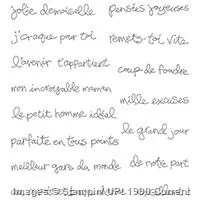 jolie demoiselle
pensées joyeuses
j'craque pour toi
remets-toi vite
l'avenir t'appartient
coup de foudre
mon incroyable maman
mille excuses
le petit homme idéal
le grand jour
parfaite en tous points
de notre part
meilleur gars du monde
Images © Stampin' UP! 1990-Current